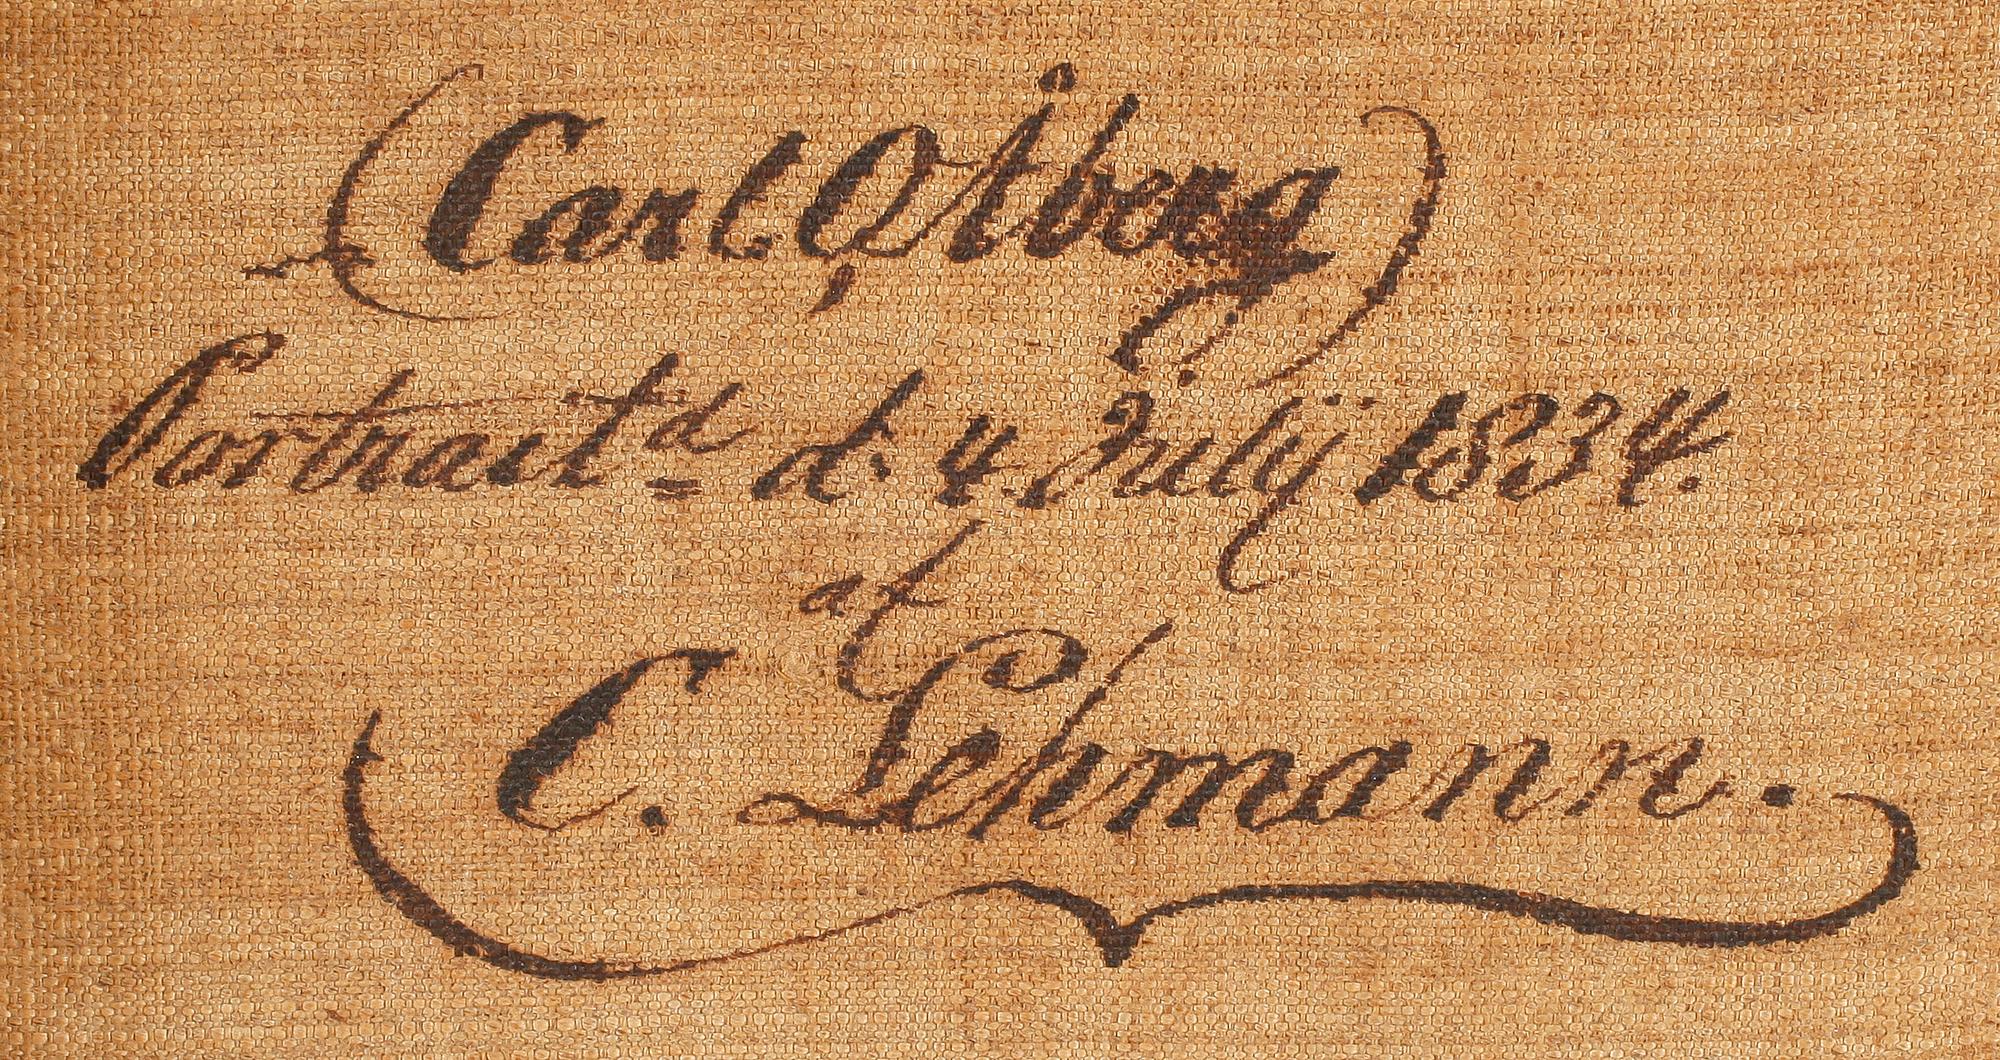 Carl O Åberg
Portraitd d: 4 Julij 1834.
af
C. Lehmann.